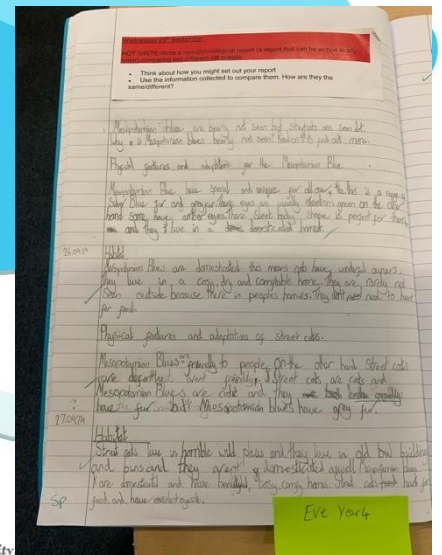 Wednesday 25th September
HOT WRITE-Write a non-chronological report (a report that can be written in any order) comparing two different cat breeds
Think about how you might set out your report
Use the information collected to compare them. How are they
same/different?
Mesopotamian blues are barely not seen but straycats are seen alot.
Why is Mesopotamian blues barely not seen? read on to find out more.
Physical features and adaptations for the Mesopotamian Blue
Mesopotamian Blue have special and unique fur
Silver Blue fur and greyfur. There eyes are usually green on the other
hand some have amber eyes. There sleek body shape is perfect for them
and they live in a domesticated
26.09.19
Habitat
Mesopotamian Blues are domesticated this means cats have wonderful owners.
They live in a cosy, dry and comfortable home. They are rarely not
seen outside because there in peoples homes. They dont need to hunt
for food.
Physical features and adaptations of street cats.
Mesopotamian Blues friendly to people, On the other hand Street cats
are arent friendly. Street cats are cats and
Mesopotamian Blues are cute and they
have fur but Mesopotamian blues have grey fur.
?
27.09.19
Habitat
Street cats live in horrible wild places and they live in old building
and buns and they arent domesticated
are domesticated and have beautiful, cosy comfy home. Street cats hunt for
Sp
food and have
Eve Year4